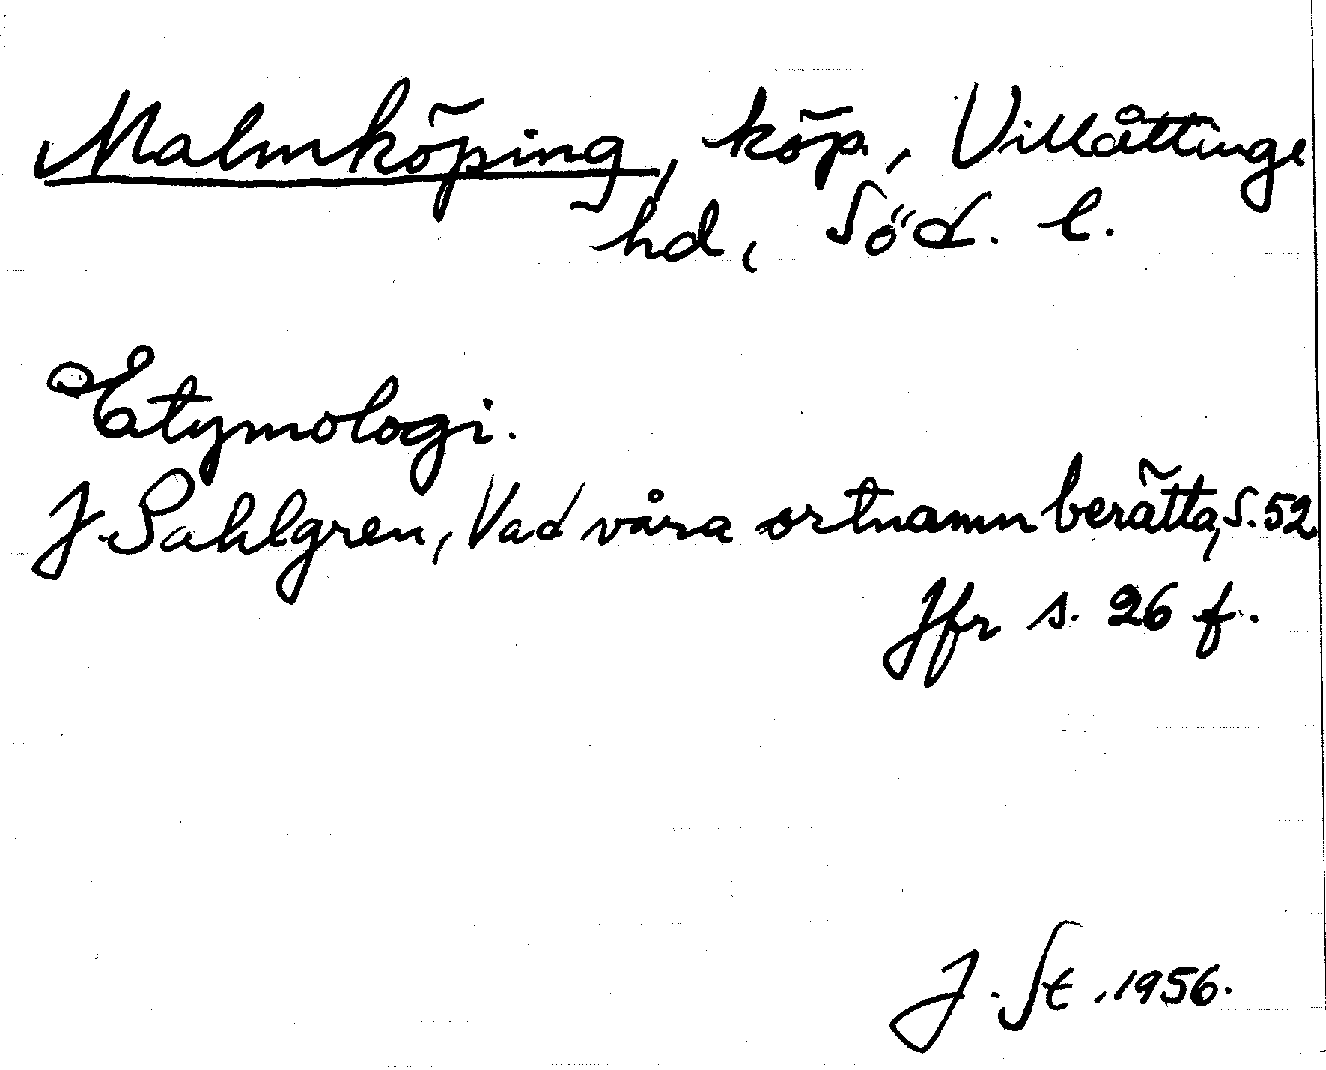 Malmköping, köp., Villåttinge
hd, Söd. l.
Etymologi.
J. Sahlgren, Vad våra ortnamn berätta, s. 52.
Jfr s. 26 f.
J. St. 1956.